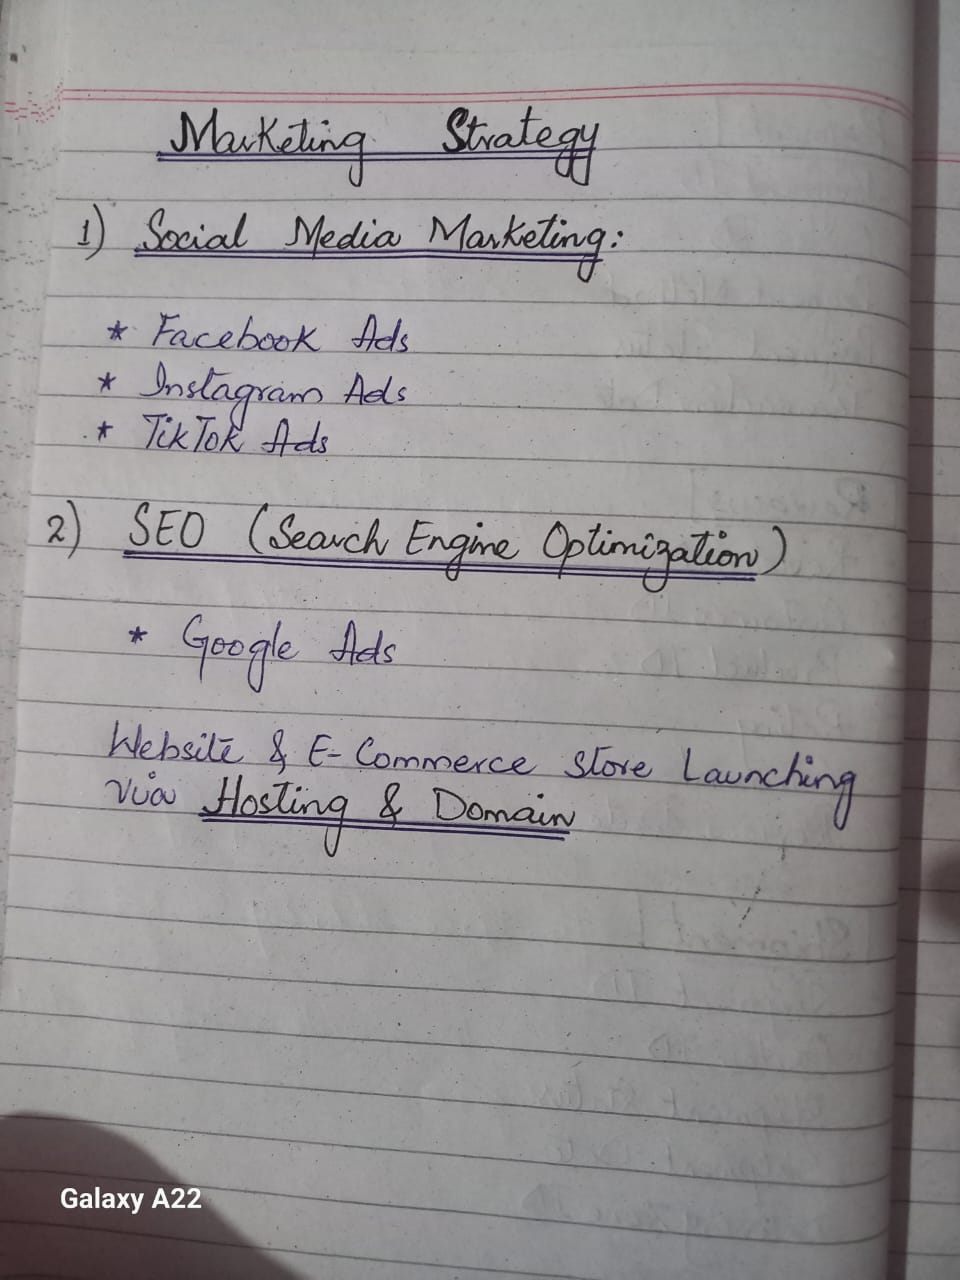 Marketing Strategy
1) Social Media Marketing:
* Facebook Ads
* Instagram Ads
* TikTok Ads
2) SEO (Search Engine Optimization)
* Google Ads
Website & E-Commerce Store Launching
via Hosting & Domain
Galaxy A22